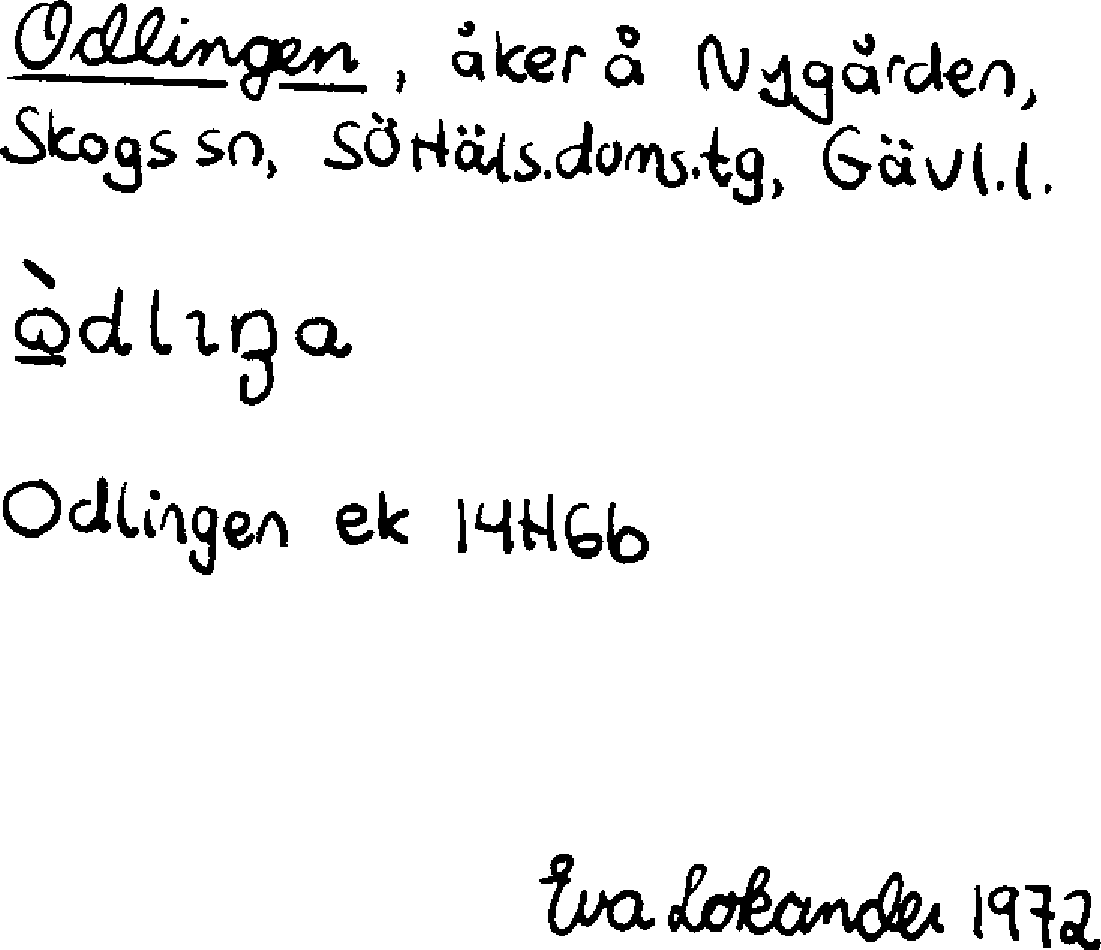 Odlingen, åker å Nygården,
Skogs sn, SöHäls.doms.tg, Gävl.l.
ὼ̲dlıŋa
Odlingen ek 14H6b
Eva Lokander 1972